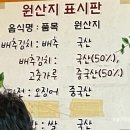 원산지 표시판
음식명 : 품목 원산지
배추김치 : 배추 국산
배추김치 : 국산(50%),
고춧가루 중국산(50%)
오징어 중국산
쌀 국산